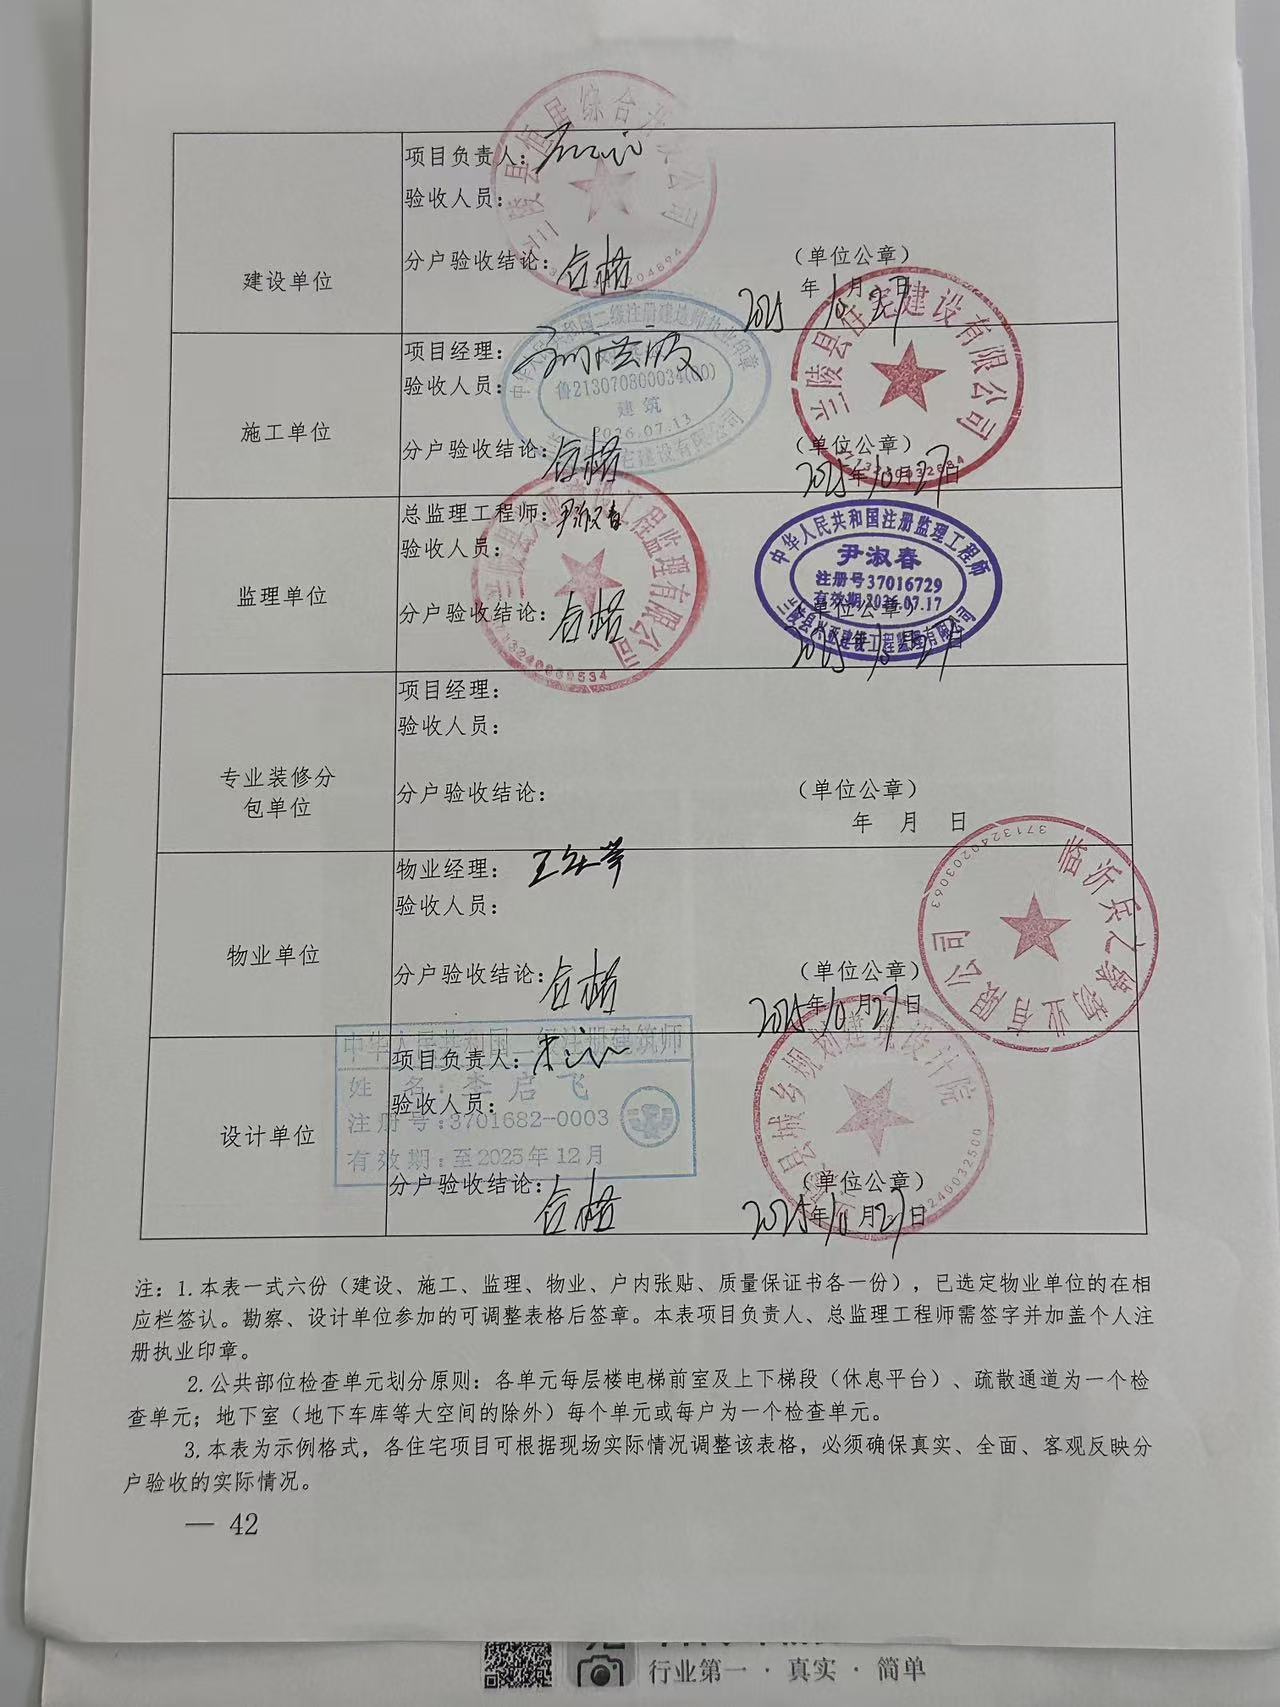 建设单位
项目负责人：
验收人员：
分户验收结论：合格
（单位公章）
2025年10月27日
兰陵县宜居综合开 公司
204894
施工单位
项目经理：
验收人员：
分户验收结论：合格
（单位公章）
2025年10月27日
中华人民共和国二级注册建造师执业印章
鲁213070800034(00)
建筑
2026.07.13
宅建设有限公司
兰陵县住宅建设有限公司
监理单位
总监理工程师：尹淑春
验收人员：
分户验收结论：合格
（单位公章）
2025年10月27日
工程监理有限公司
中华人民共和国注册监理工程师
尹淑春
注册号37016729
有效期2026.07.17
兰陵县兴亚建设工程监理有限公司
专业装修分
包单位
项目经理：
验收人员：
分户验收结论：
（单位公章）
年 月 日
物业单位
物业经理：
验收人员：
分户验收结论：合格
（单位公章）
2025年10月27日
临沂兵之缘物业有限公司
3713240203063
设计单位
项目负责人：
验收人员：
分户验收结论：合格
（单位公章）
2025年10月27日
中华人民共和国二级注册建筑师
姓 名：李启飞
注册号：3701682-0003
有效期：至2025年12月
县城乡规划建筑设计院
3240032500
注：1.本表一式六份（建设、施工、监理、物业、户内张贴、质量保证书各一份），已选定物业单位的在相
应栏签认。勘察、设计单位参加的可调整表格后签章。本表项目负责人、总监理工程师需签字并加盖个人注
册执业印章。
2.公共部位检查单元划分原则：各单元每层楼电梯前室及上下梯段（休息平台）、疏散通道为一个检
查单元；地下室（地下车库等大空间的除外）每个单元或每户为一个检查单元。
3.本表为示例格式，各住宅项目可根据现场实际情况调整该表格，必须确保真实、全面、客观反映分
户验收的实际情况。
— 42
行业第一 · 真实 · 简单